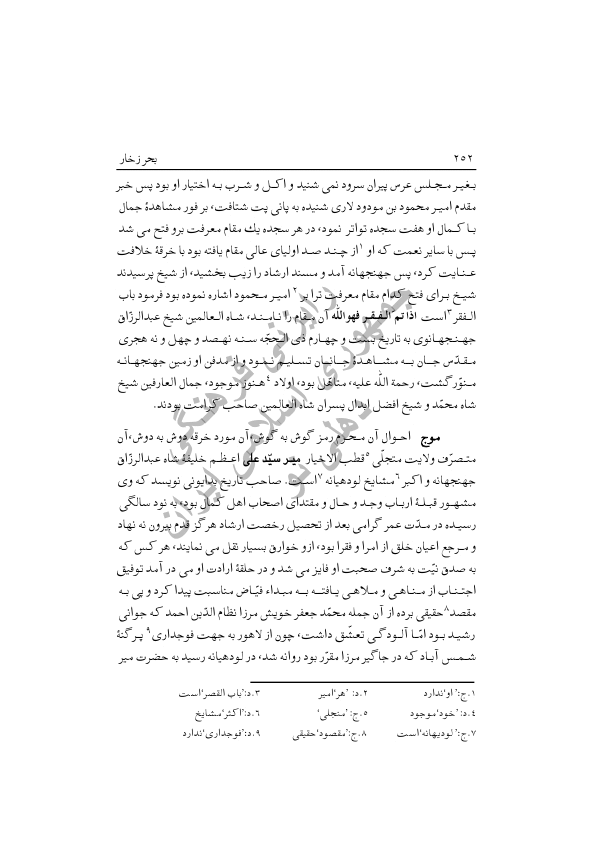 ۲۵۲ بحر زخار
بغیر مجلس عرس پیران سرود نمی شنید و اکل و شرب به اختیار او بود پس خبر
مقدم امیر محمود بن مودود لاری شنیده به پانی پت شتافت، بر فور مشاهدهٔ جمال
با کمال او هفت سجده تواتر نمود، در هر سجده یك مقام معرفت برو فتح می شد
پس با سایر نعمت که او ۱از چند صد اولیای عالی مقام یافته بود با خرقهٔ خلافت
عنایت کرد، پس جهنجهانه آمد و مسند ارشاد را زیب بخشید، از شیخ پرسیدند
شیخ برای فتح کدام مقام معرفت ترا بر ۲امیر محمود اشاره نموده بود فرمود باب
الفقر۳است اذا تم الفقر فهوالله آن مقام را نامند، شاه العالمین شیخ عبدالرزّاق
جهنجهانوی به تاریخ بست و چهارم ذی الحجّه سنه نهصد و چهل و نه هجری
مقدّس جان به مشاهدهٔ جانان تسلیم نمود و از مدفن او زمین جهنجهانه
منوّر گشت، رحمة الله علیه، متاهّل بود، اولاد ۴هنوز موجود، جمال العارفین شیخ
شاه محمّد و شیخ افضل ابدال پسران شاه العالمین صاحب کرامت بودند.
موج احوال آن محرم رمز گوش به گوش،آن مورد خرقه دوش به دوش،آن
متصرّف ولایت متجلّی ۵قطب الاخیار میر سیّد علی اعظم خلیفهٔ شاه عبدالرزّاق
جهنجهانه و اکبر ۶مشایخ لودهیانه ۷است. صاحب تاریخ بدایونی نویسد که وی
مشهور قبلهٔ ارباب وجد و حال و مقتدای اصحاب اهل کمال بود، به نود سالگی
رسیده در مدّت عمر گرامی بعد از تحصیل رخصت ارشاد هرگز قدم بیرون نه نهاد
و مرجع اعیان خلق از امرا و فقرا بود، ازو خوارق بسیار نقل می نمایند، هر کس که
به صدق نیّت به شرف صحبت او فایز می شد و در حلقهٔ ارادت او می در آمد توفیق
اجتناب از مناهی و ملاهی یافته به مبداء فیّاض مناسبت پیدا کرد و پی به
مقصد۸حقیقی برده از آن جمله محمّد جعفر خویش مرزا نظام الدّین احمد که جوانی
رشید بود امّا آلودگی تعشّق داشت، چون از لاهور به جهت فوجداری۹ پرگنهٔ
شمس آباد که در جاگیر مرزا مقرّر بود روانه شد، در لودهیانه رسید به حضرت میر
۱.ج:’او‘ندارد ۲.د: ’هر‘امیر ۳.د:’باب القصر‘است
۴.د: ’خود‘موجود ۵.ج: ’منجلی‘ ۶.د:’اکثر‘مشایخ
۷.ج:’لودیهانه‘است ۸.ج:’مقصود‘حقیقی ۹.د:’فوجداری‘ندارد